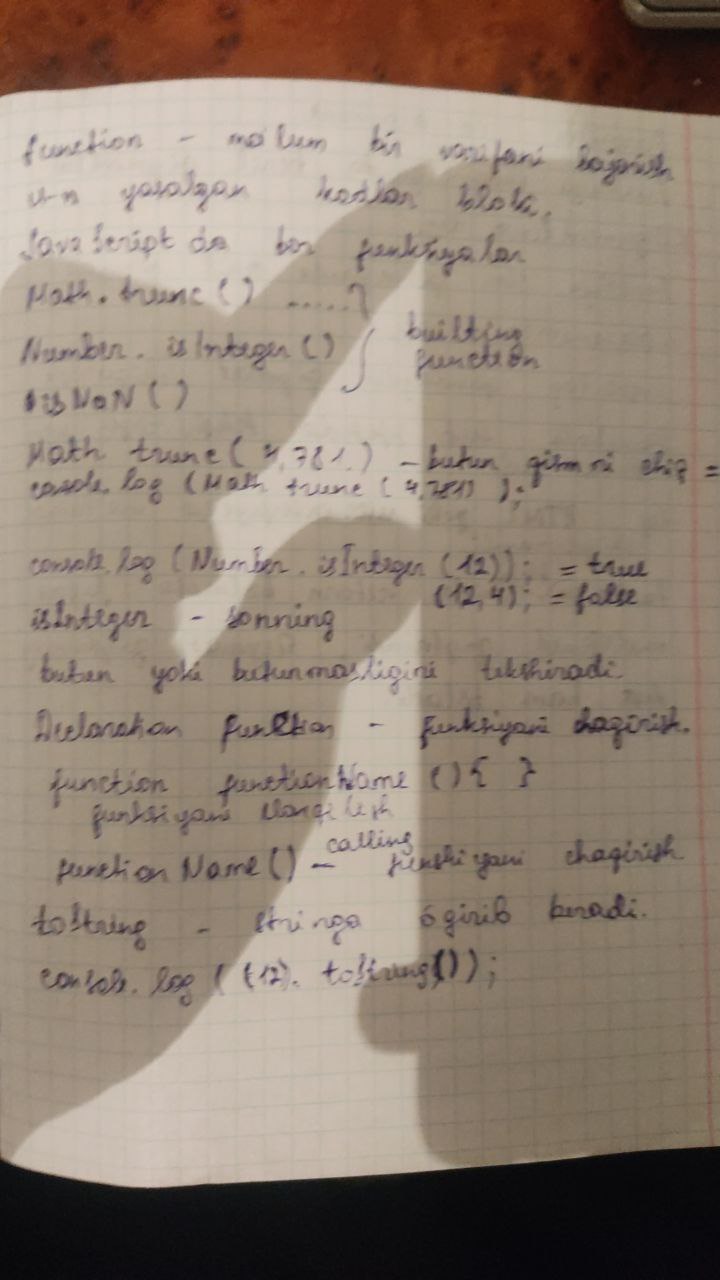 function - ma'lum bir vazifani bajarish
u-n yasalgan kodlar bloki.
JavaScript da bor funksiyalar
Math. trunc ( ) .....
Number. isInteger ( ) builting
function
isNaN ( )
Math trunc ( 4,781 ) - butun qismni chiq =
console. log (Math trunc ( 4,781) );
console. log (Number. isInteger (12)); = true
(12,4); = false
isInteger - sonning
butun yoki butunmasligini tekshiradi.
Declaration function - funksiyani chaqirish.
function functionName () { }
funksiyani
calling
function Name() - funksiyani chaqirish
toString - stringa o'girib beradi.
console. log ( (12). toString());